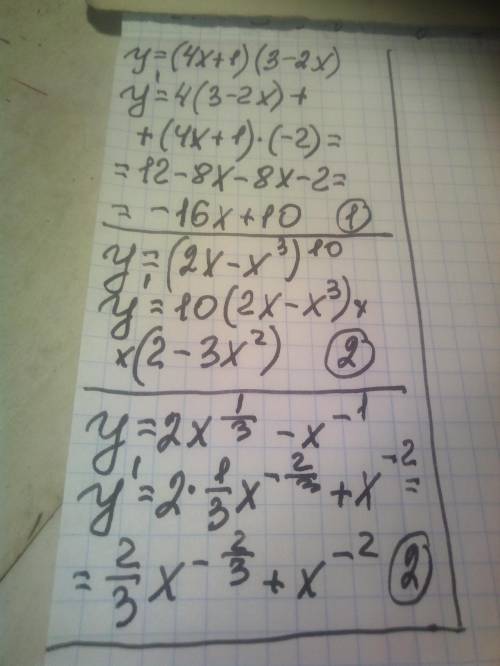 y=(4x+1)(3-2x)
y'=4(3-2x)+
+(4x+1)·(-2)=
=12-8x-8x-2=
= -16x+10 ①
y=(2x-x³)¹⁰
y'=10(2x-x³)×
×(2-3x²) ②
y=2x^{1/3} -x⁻¹
y'=2·1/3 x^{-2/3}+x⁻²=
=2/3 x^{-2/3}+x⁻² ②